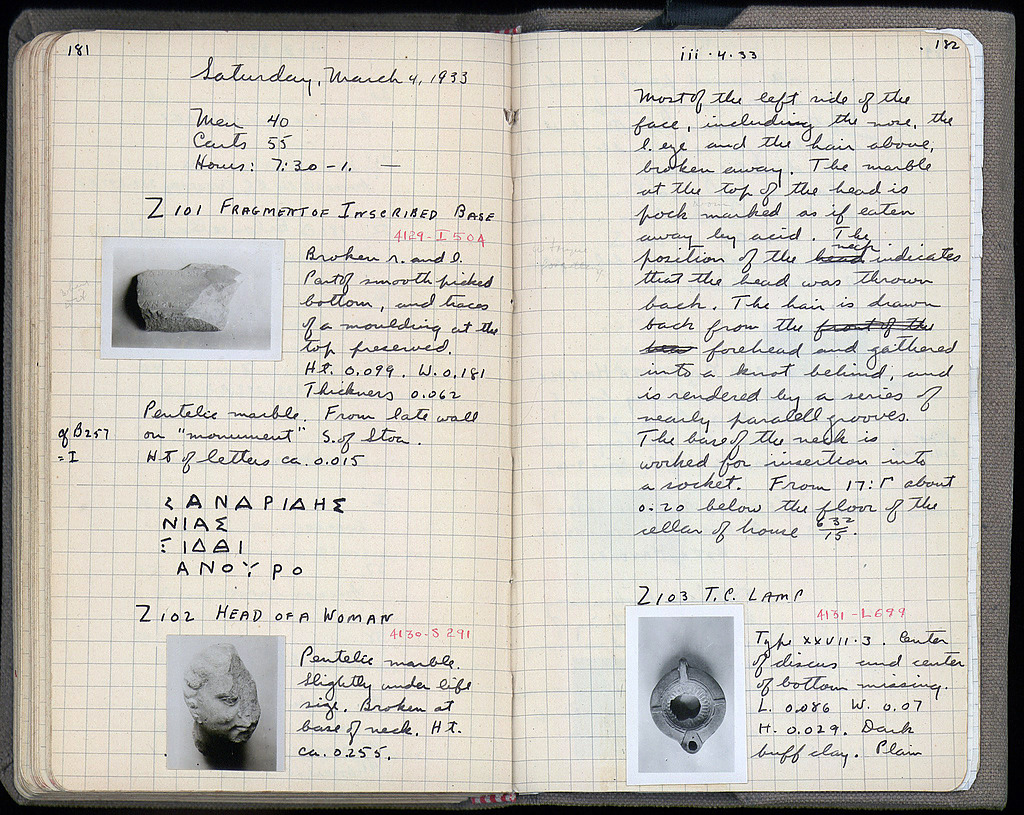 181
Saturday, March 4, 1933
Men 40
Carts 55
Hours: 7:30 - 1. —
Z 101 FRAGMENT OF INSCRIBED BASE
4129 - I 504
Broken r. and l.
Part of smooth picked
bottom, and traces
of a moulding at the
top preserved.
Ht. 0.099. W. 0.181
Thickness 0.062
Pentelic marble. From late wall
on "monument" S. of Stoa.
cf B257
= I
Ht of letters ca. 0.015
ΣΑΝΔΡΙΔΗΣ
ΝΙΑΣ
ΞΙΔΑΙ
ΑΝΟΥΡΟ
Z 102 HEAD OF A WOMAN
4130 - S 291
Pentelic marble.
Slightly under life
size. Broken at
base of neck. Ht.
ca. 0.255.
182
iii · 4 · 33
Most of the left side of the
face, including the nose, the
l. eye and the hair above,
broken away. The marble
at the top of the head is
pock marked as if eaten
away by acid. The
position of the head neck indicates
that the head was thrown
back. The hair is drawn
back from the front of the
forehead and gathered
into a knot behind, and
is rendered by a series of
nearly paralell grooves.
The base of the neck is
worked for insertion into
a socket. From 17:Γ about
0.20 below the floor of the
cellar of house 632/15.
Z 103 T.C. LAMP
4131 - L 699
Type XXVII·3. Center
of discus and center
of bottom missing.
L. 0.086 W. 0.07
H. 0.029. Dark
buff clay. Plain